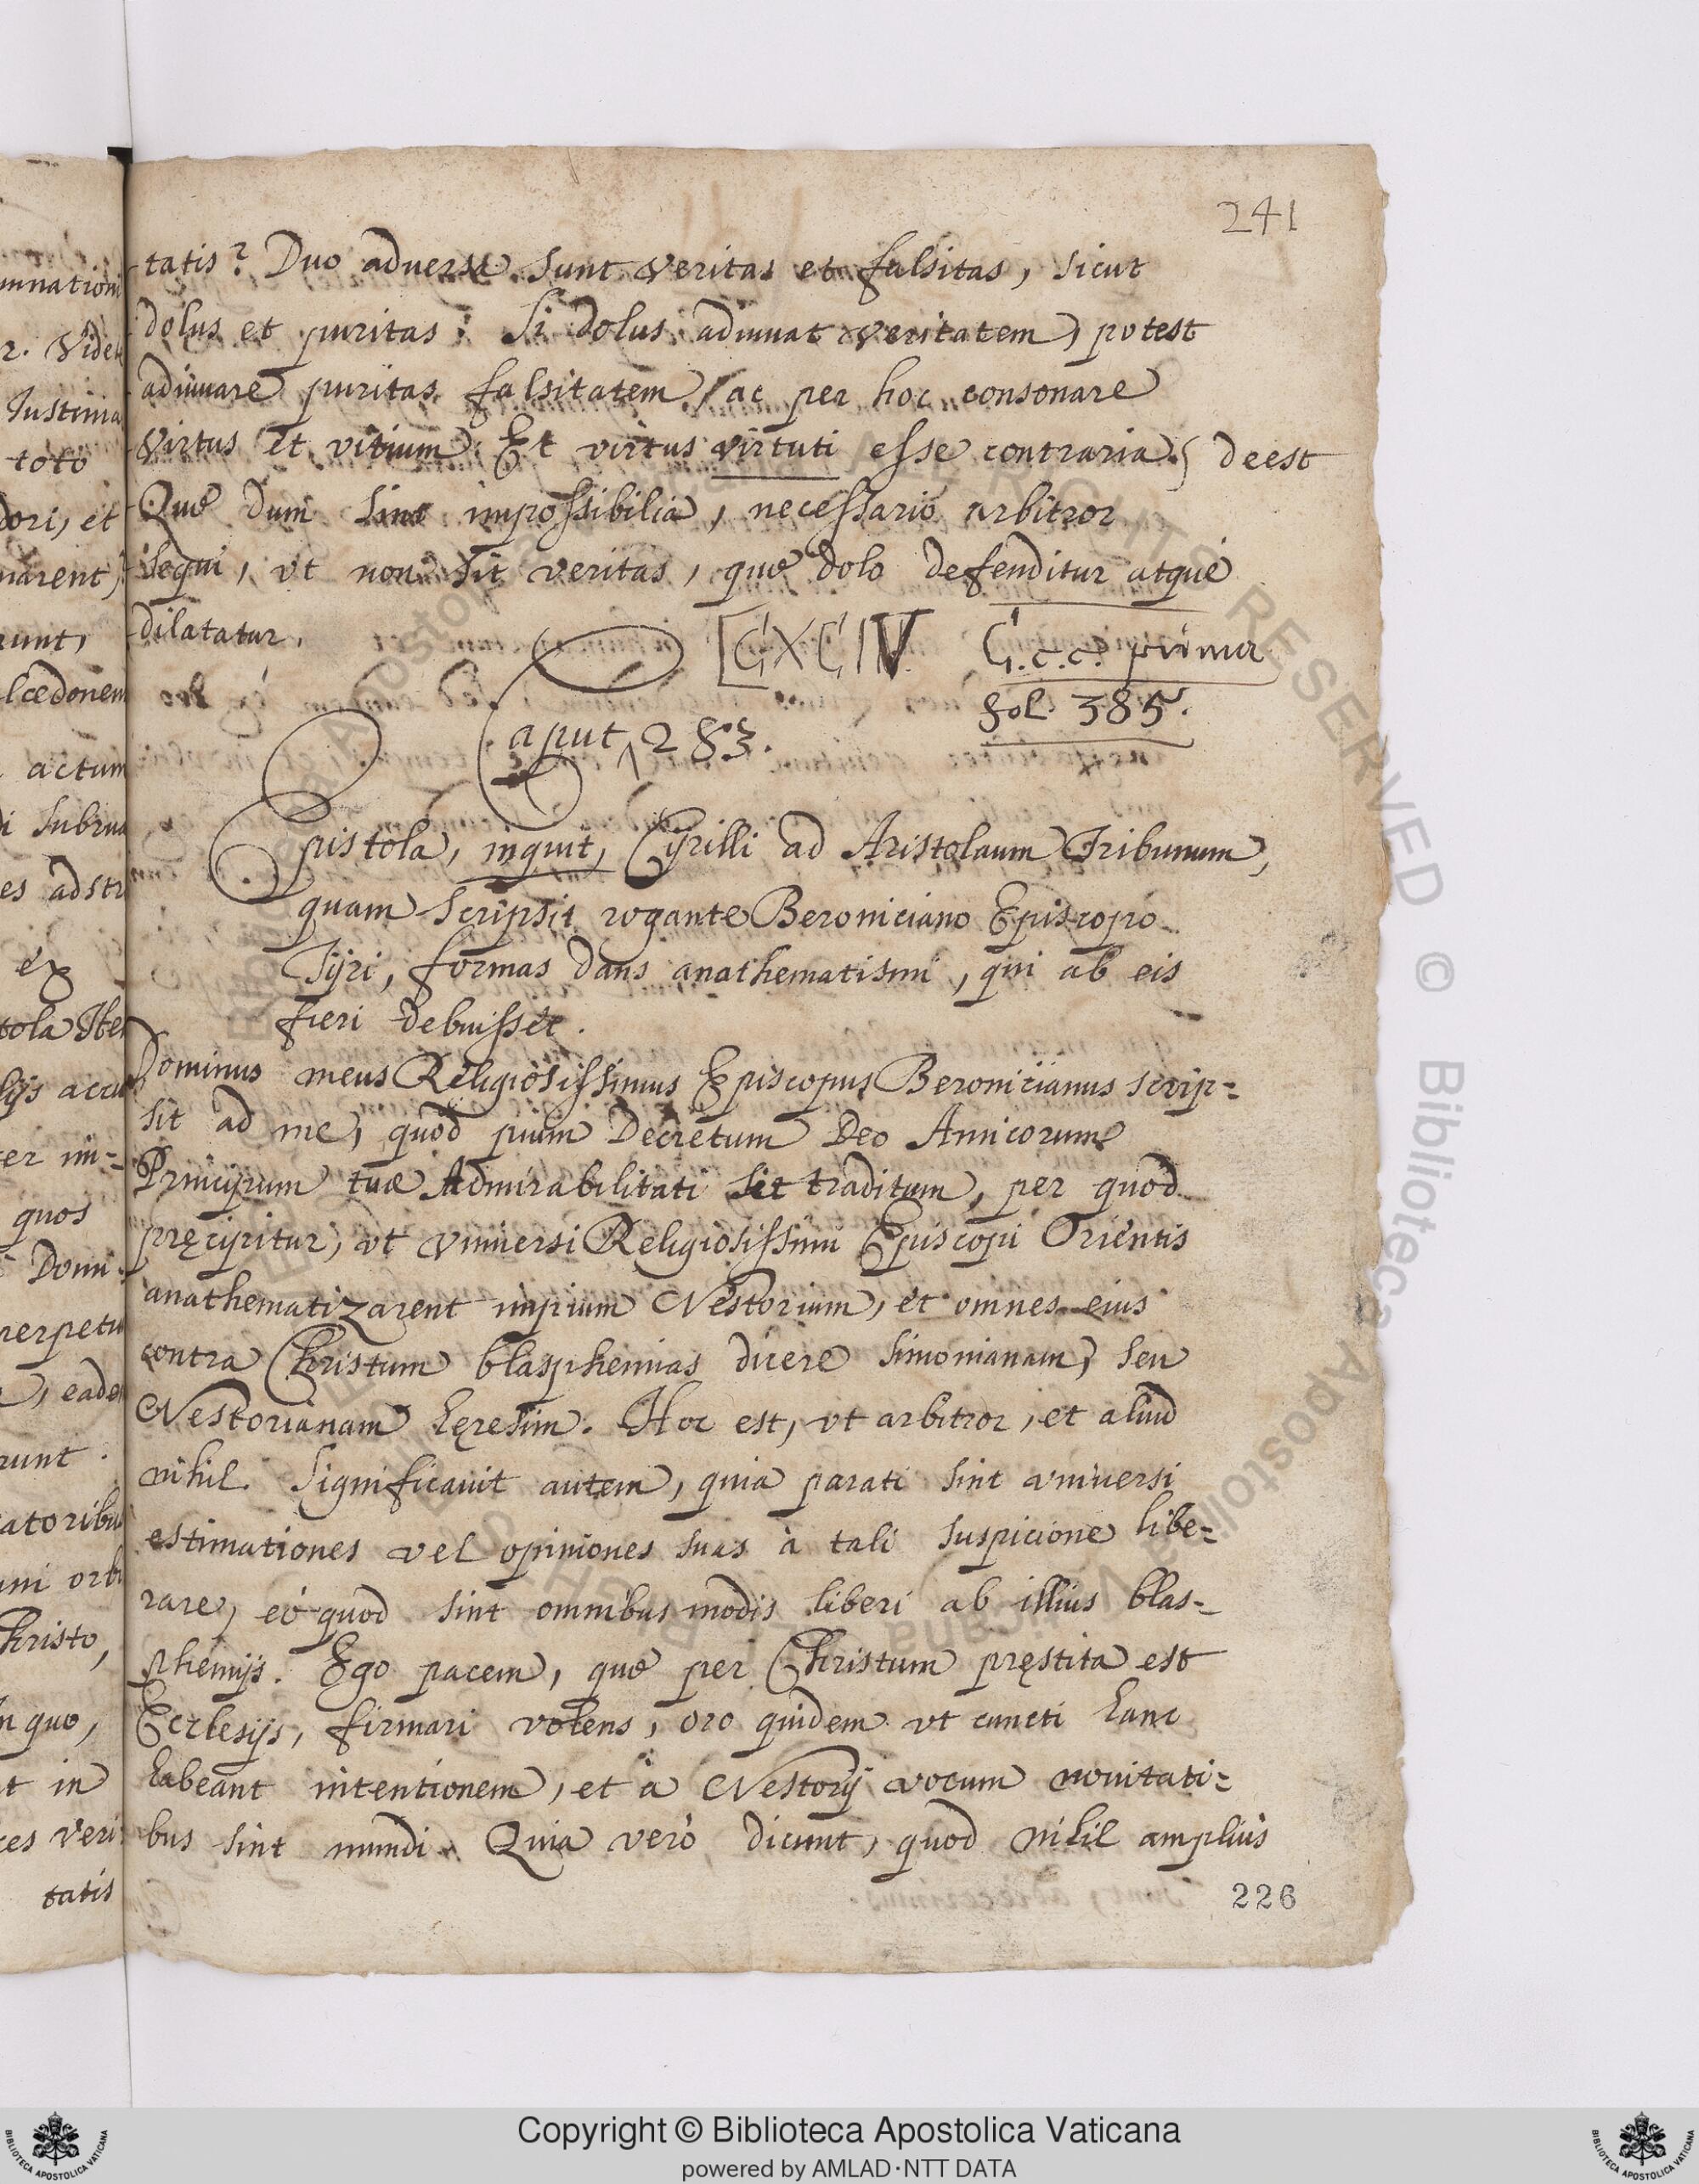 241
tatis? Duo adversa sunt veritas et falsitas, sicut
dolus et puritas: Si dolus adiuuat veritatem, potest
adiuuare puritas falsitatem, ac per hoc consonare
virtus et vitium. Et virtus virtuti esse contraria. deest
Quæ dum sint impossibilia, necessario arbitror
sequi, vt non sit veritas, quæ dolo defenditur atque
dilatatur.
[CXCIV. C.c.c. primur
Caput 283. fol. 385.
Epistola, inquit, Cyrilli ad Aristolaum Tribunum,
quam scripsit rogante Beroniciano Episcopo
Tyri, formas dans anathematismi, qui ab eis
fieri debuisset.
Dominus meus Religiosissimus Episcopus Beronicianus scrip=
sit ad me, quod pium Decretum Deo Amicorum
Principum tuæ Admirabilitati sit traditum, per quod
pręcipitur, vt vniuersi Religiosissimi Episcopi Orientis
anathematizarent impium Nestorium, et omnes eius
contra Christum blasphemias dicere simonianam, seu
Nestorianam hęresim. Hoc est, vt arbitror, et aliud
nihil. Significauit autem, quia parati sint vniuersi
estimationes vel opiniones suas à tali suspicione libe=
rare, eò quod sint omnibus modis liberi ab illius blas=
phemijs. Ego pacem, quæ per Christum pręstita est
Ecclesijs, firmari volens, oro quidem vt cuncti hanc
habeant intentionem, et à Nestorij vocum nouitati=
bus sint mundi. Quia verò dicunt, quod nihil ampliùs
226
mnationi
r. Vide
Iustinia
toto
dori, et
narent,
runt,
lcedonem
actum
di subrua
es adstr
ex
tola Ibe
lijs accu
er im=
quos
Domi
perpetu
, eade
runt.
atoribu
mi orb
hristo,
n quo,
t in
ces veri
tatis
Copyright © Biblioteca Apostolica Vaticana
powered by AMLAD·NTT DATA
BIBLIOTECA APOSTOLICA VATICANA
BIBLIOTECA APOSTOLICA VATICANA